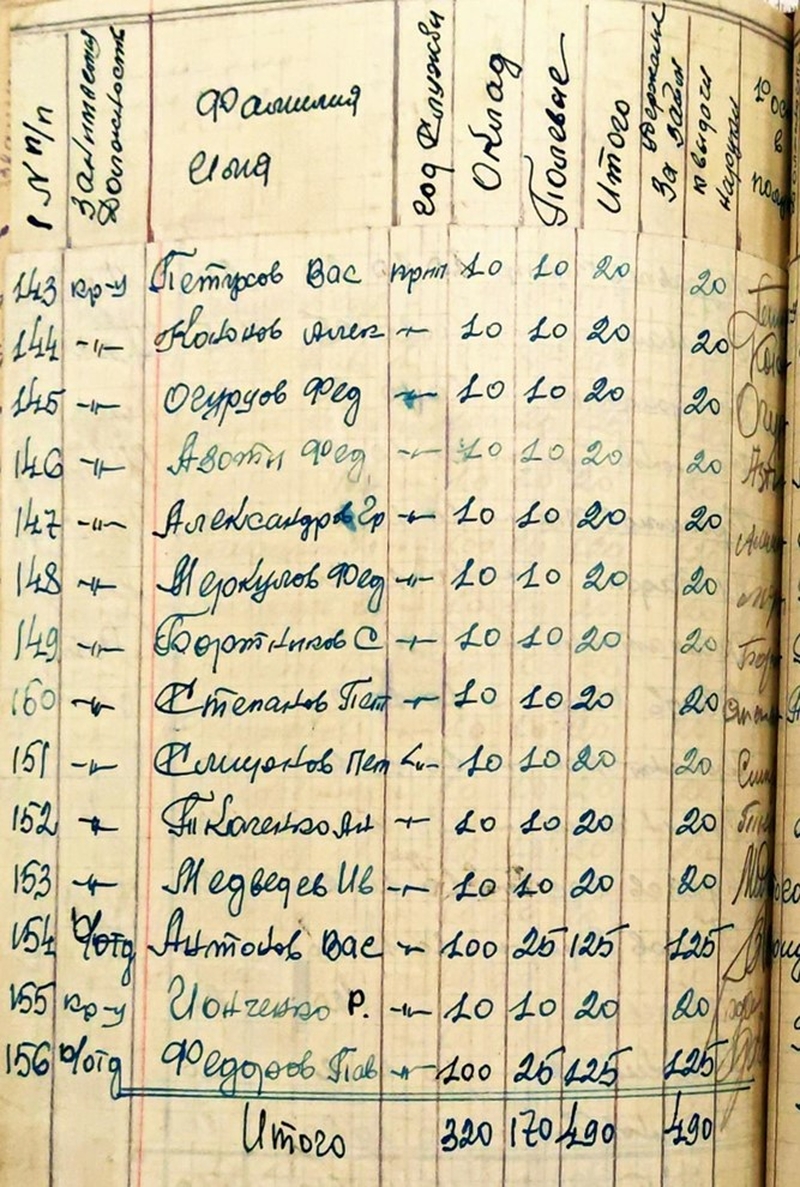 № п/п Занимаемая Должность Фамилия Имя Год Службы Оклад Полевые Итого Держание За Займ к выдачи на руки
143 кр-ц Петухов Вас 10 10 20 20
144 -"- Алек -"- 10 10 20 20
145 -"- Огурцов Фед -"- 10 10 20 20
146 -"- Фед -"- 10 10 20 20
147 -"- Александров Гр -"- 10 10 20 20
148 -"- Меркулов Фед -"- 10 10 20 20
149 -"- Бортников С -"- 10 10 20 20
-"- Степанов Пет -"- 10 10 20 20
151 -"- Пет -"- 10 10 20 20
152 -"- Ткаченко Ан -"- 10 10 20 20
153 -"- Медведев Ив -"- 10 10 20 20
154 к/отд Антонов Вас -"- 100 25 125 125
155 кр-ц Ионченко Р. -"- 10 10 20 20
156 к/отд Федоров Пав -"- 100 25 125 125
Итого 320 170 490 490